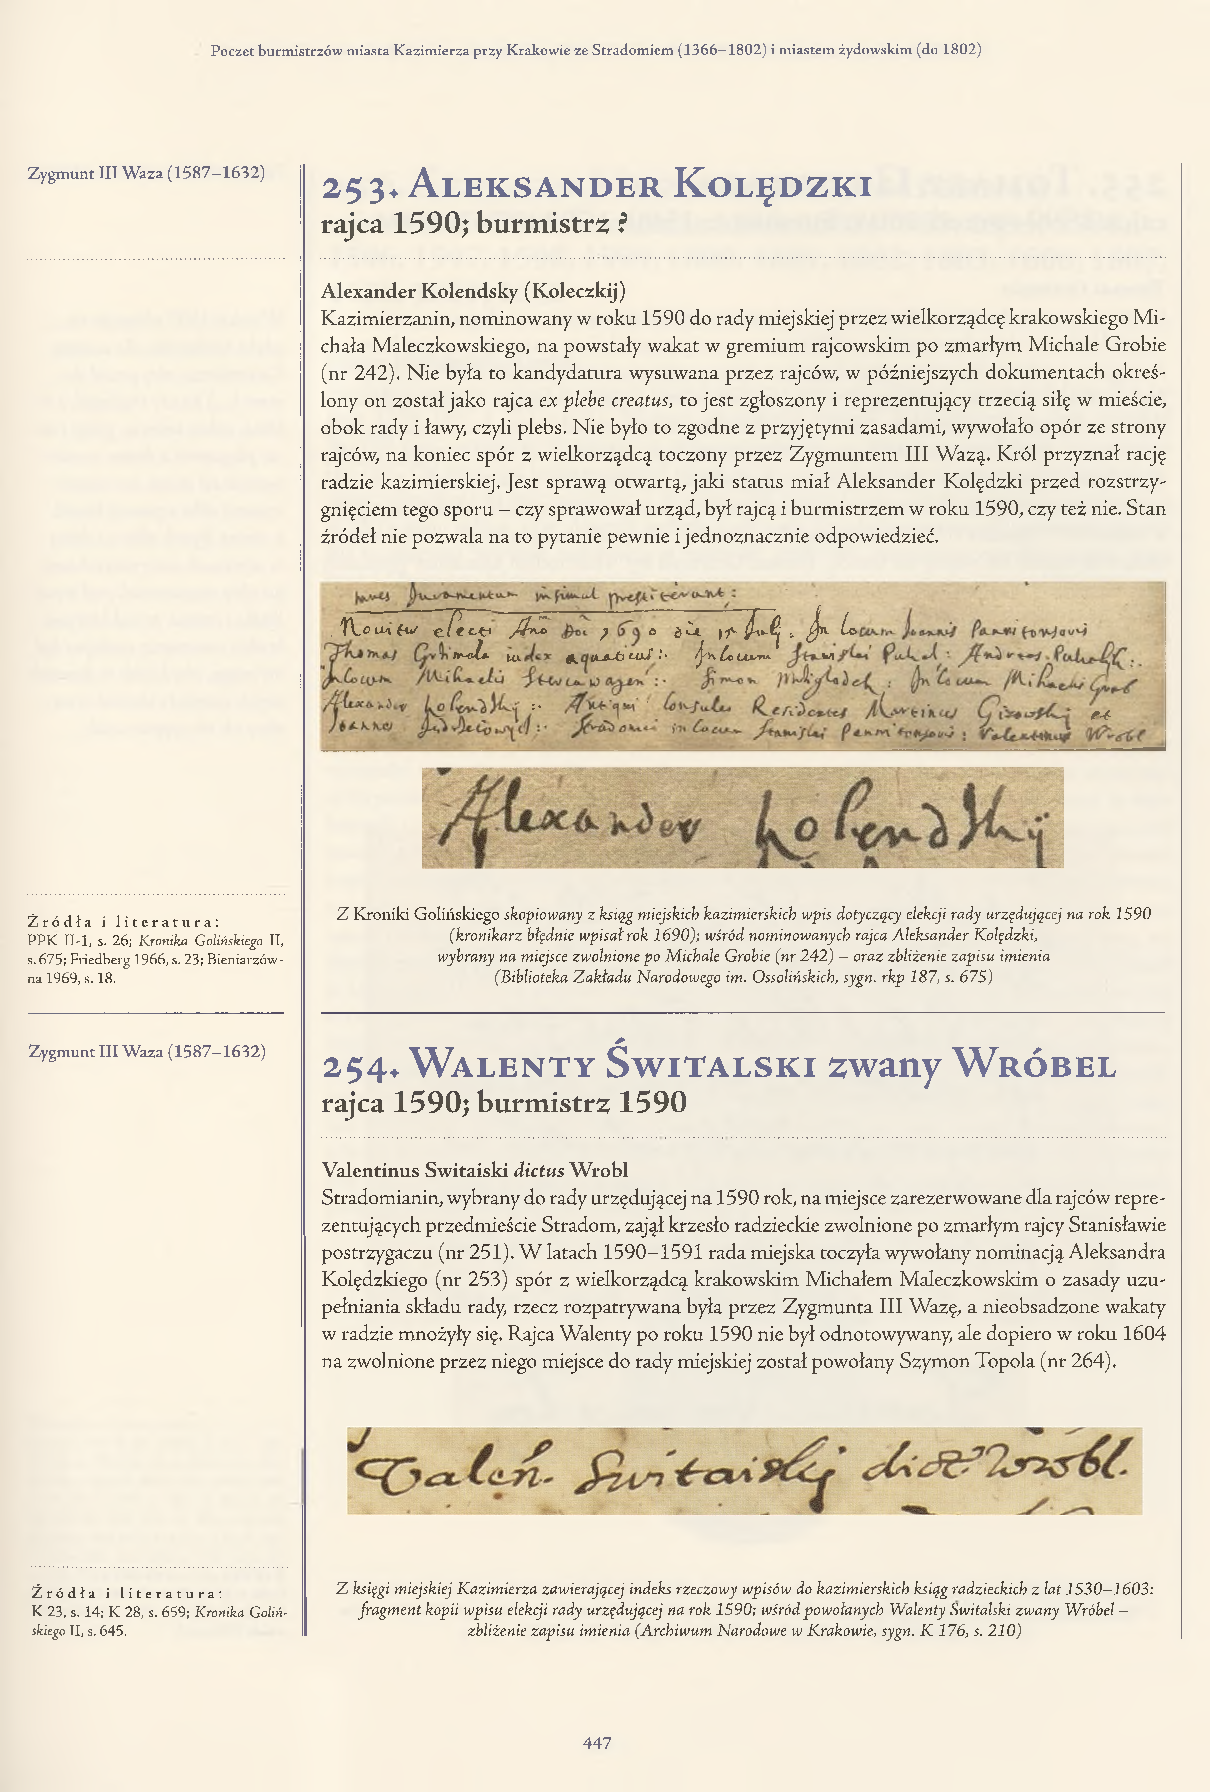 Poczet burmistrzów miasta Kazimierza przy Krakowie ze Stradomiem (1366–1802) i miastem żydowskim (do 1802)
Zygmunt III Waza (1587–1632)
253. Aleksander Kolędzki
rajca 1590; burmistrz ?
Alexander Kolendsky (Koleczkij)
Kazimierzanin, nominowany w roku 1590 do rady miejskiej przez wielkorządcę krakowskiego Mi-
chała Maleczkowskiego, na powstały wakat w gremium rajcowskim po zmarłym Michale Grobie
(nr 242). Nie była to kandydatura wysuwana przez rajców, w późniejszych dokumentach okreś-
lony on został jako rajca ex plebe creatus, to jest zgłoszony i reprezentujący trzecią siłę w mieście,
obok rady i ławy, czyli plebs. Nie było to zgodne z przyjętymi zasadami, wywołało opór ze strony
rajców, na koniec spór z wielkorządcą toczony przez Zygmuntem III Wazą. Król przyznał rację
radzie kazimierskiej. Jest sprawą otwartą, jaki status miał Aleksander Kolędzki przed rozstrzy-
gnięciem tego sporu – czy sprawował urząd, był rajcą i burmistrzem w roku 1590, czy też nie. Stan
źródeł nie pozwala na to pytanie pewnie i jednoznacznie odpowiedzieć.
Juramentum insimul prestiterunt :
Noviter electi Anno Doi 1690 die 15 Julj. In locum Joannis Pannitonsoris
Thomas Grhimala iudex aquaticus :. In locum Stanislai Puhal : Andreas Puhalʃki :.
In locum Michaelis :. Simon : In locum Michaelis Grob
Alexander Kolendskij :. Antiqui Consules Residentes Martinus Gizowskij et
Joannes :. Stradomiae in locum Stanislai Pannitonsoris : Valentinus Wrobl
Alexander Kolendskij
Z Kroniki Golińskiego skopiowany z ksiąg miejskich kazimierskich wpis dotyczący elekcji rady urzędującej na rok 1590
(kronikarz błędnie wpisał rok 1690); wśród nominowanych rajca Aleksander Kolędzki,
wybrany na miejsce zwolnione po Michale Grobie (nr 242) – oraz zbliżenie zapisu imienia
(Biblioteka Zakładu Narodowego im. Ossolińskich, sygn. rkp 187, s. 675)
Źródła i literatura:
PPK II-1, s. 26; Kronika Golińskiego II,
s. 675; Friedberg 1966, s. 23; Bieniarzów-
na 1969, s. 18.
Zygmunt III Waza (1587–1632)
254. Walenty Świtalski zwany Wróbel
rajca 1590; burmistrz 1590
Valentinus Switaiski dictus Wrobl
Stradomianin, wybrany do rady urzędującej na 1590 rok, na miejsce zarezerwowane dla rajców repre-
zentujących przedmieście Stradom, zajął krzesło radzieckie zwolnione po zmarłym rajcy Stanisławie
postrzygaczu (nr 251). W latach 1590–1591 rada miejska toczyła wywołany nominacją Aleksandra
Kolędzkiego (nr 253) spór z wielkorządcą krakowskim Michałem Maleczkowskim o zasady uzu-
pełniania składu rady, rzecz rozpatrywana była przez Zygmunta III Wazę, a nieobsadzone wakaty
w radzie mnożyły się. Rajca Walenty po roku 1590 nie był odnotowywany, ale dopiero w roku 1604
na zwolnione przez niego miejsce do rady miejskiej został powołany Szymon Topola (nr 264).
Valen. Switaiskij dict. Wrobl.
Z księgi miejskiej Kazimierza zawierającej indeks rzeczowy wpisów do kazimierskich ksiąg radzieckich z lat 1530–1603:
fragment kopii wpisu elekcji rady urzędującej na rok 1590; wśród powołanych Walenty Świtalski zwany Wróbel –
zbliżenie zapisu imienia (Archiwum Narodowe w Krakowie, sygn. K 176, s. 210)
Źródła i literatura:
K 23, s. 14; K 28, s. 659; Kronika Goliń-
skiego II, s. 645.
447